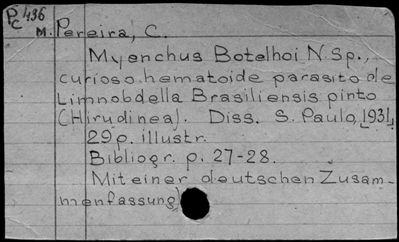 P/C 436
M. Pereira, C.
Myenchus Botelhoi N. Sp.,
curioso hematoide parasito de
Limnobdella Brasiliensis pinto
(Hirudinea). Diss. S. Paulo, [1931]
29 p. illustr.
Bibliogr. p. 27-28.
Mit einer deutschen Zusam-
menfassung)